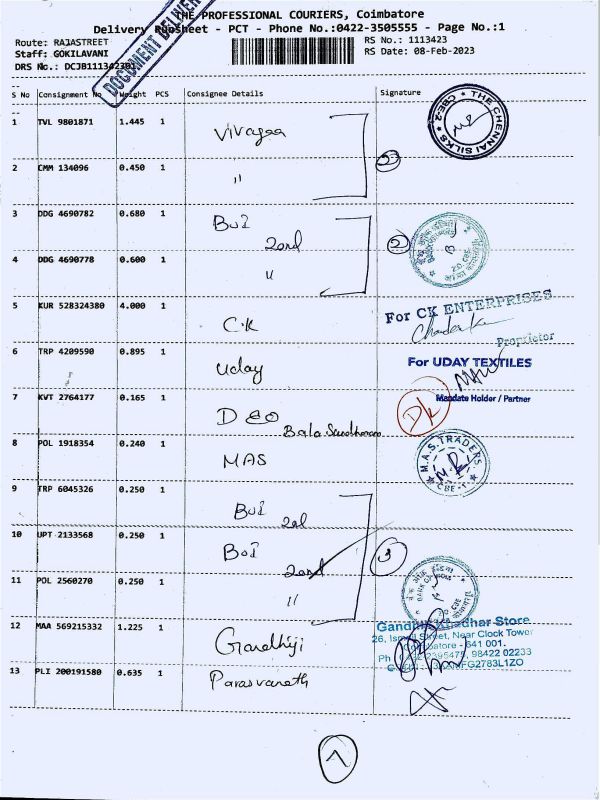 THE PROFESSIONAL COURIERS, Coimbatore
Delivery Runsheet - PCT - Phone No.:0422-3505555 - Page No.:1
Route: RAJASTREET
RS No.: 1113423
Staff: GOKILAVANI
RS Date: 08-Feb-2023
DRS No.:
DOCUMENT
S No Consignment No Weight PCS Consignee Details Signature
1 TVL 9801871 1.445 1
THE CHENNAI SILKS
CBE-2
2 CMM 134096 0.450 1 "
2
3 DDG 4690782 0.680 1 BOI
2and
2
4 DDG 4690778 0.600 1 "
5 KUR 528324380 4.000 1 C.K
For CK ENTERPRISES
Proprietor
6 TRP 4209590 0.895 1 Uday
For UDAY TEXTILES
Mandate Holder / Partner
7 KVT 2764177 0.165 1 DEO
Bala
8 POL 1918354 0.240 1 MAS
M.A.S. TRADERS
CBE - 1
9 TRP 6045326 0.250 1 BOI
10 UPT 2133568 0.250 1 BOI
2and
3
11 POL 2560270 0.250 1 "
12 MAA 569215332 1.225 1 Gandhiji
Store
Street, Near Clock Tower
641 001.
2395475, 98422 02233
13 PLI 200191580 0.635 1 Parasvanath